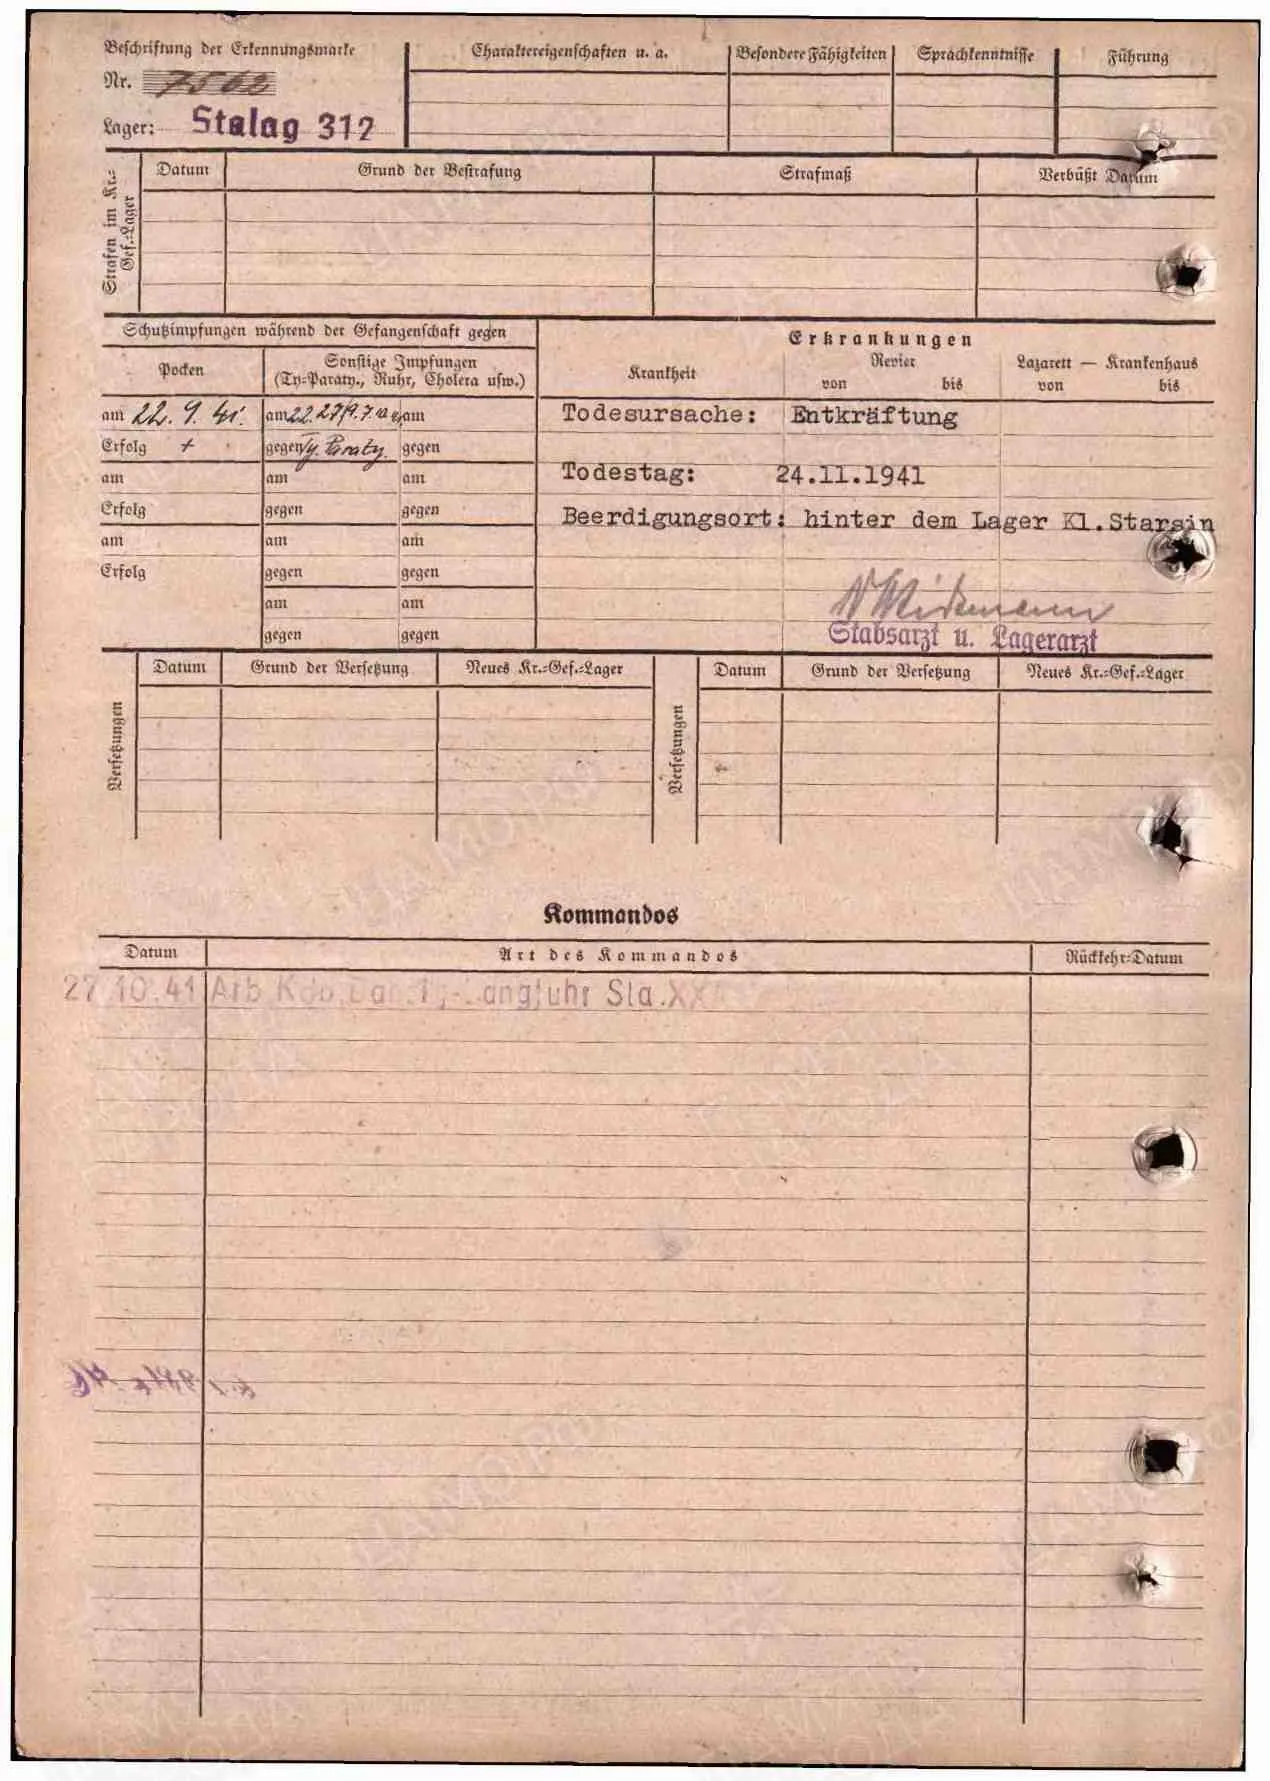 Beschriftung der Erkennungsmarke
Nr. 7502
Lager: Stalag 312
Charaktereigenschaften u. a.
Besondere Fähigkeiten
Sprachkenntnisse
Führung
Strafen im Kr.=
Gef.=Lager
Datum
Grund der Bestrafung
Strafmaß
Verbüßt Datum
Schutzimpfungen während der Gefangenschaft gegen
Pocken
Sonstige Impfungen
(Ty=Paraty., Ruhr, Cholera usw.)
am 22. 9. 41. am 22. 27/9. 7. am
Erfolg + gegen Ty. Paraty. gegen
am am am
Erfolg gegen gegen
am am am
Erfolg gegen gegen
am am
gegen gegen
Erkrankungen
Krankheit
Revier
von bis
Lazarett — Krankenhaus
von bis
Todesursache: Entkräftung
Todestag: 24.11.1941
Beerdigungsort: hinter dem Lager Kl.Starsin
Stabsarzt u. Lagerarzt
Versetzungen
Datum
Grund der Versetzung
Neues Kr.=Gef.=Lager
Versetzungen
Datum
Grund der Versetzung
Neues Kr.=Gef.=Lager
Kommandos
Datum
Art des Kommandos
Rückkehr=Datum
27.10.41 Arb Kdo. Langfuhr Sta.XX